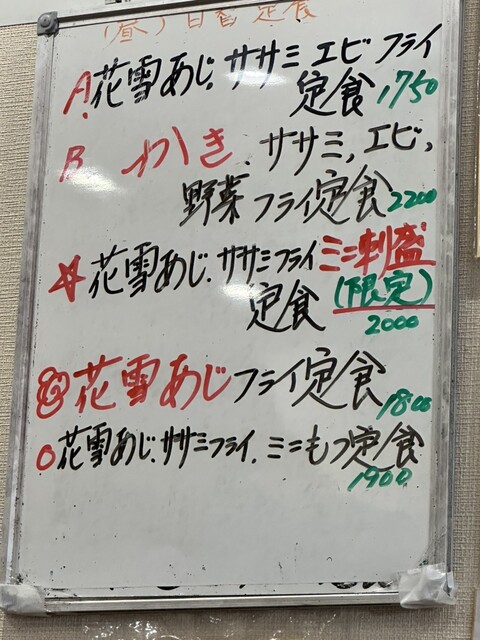 (昼)日替定食
A.花雪あじ.ササミ エビ フライ
定食 1750
B かき.ササミ,エビ,
野菜フライ定食 2200
☆花雪あじ.ササミフライ ミニ刺盛
定食 (限定)
2000
花雪あじフライ定食
1800
○花雪あじ.ササミフライ.ミニもつ定食
1900